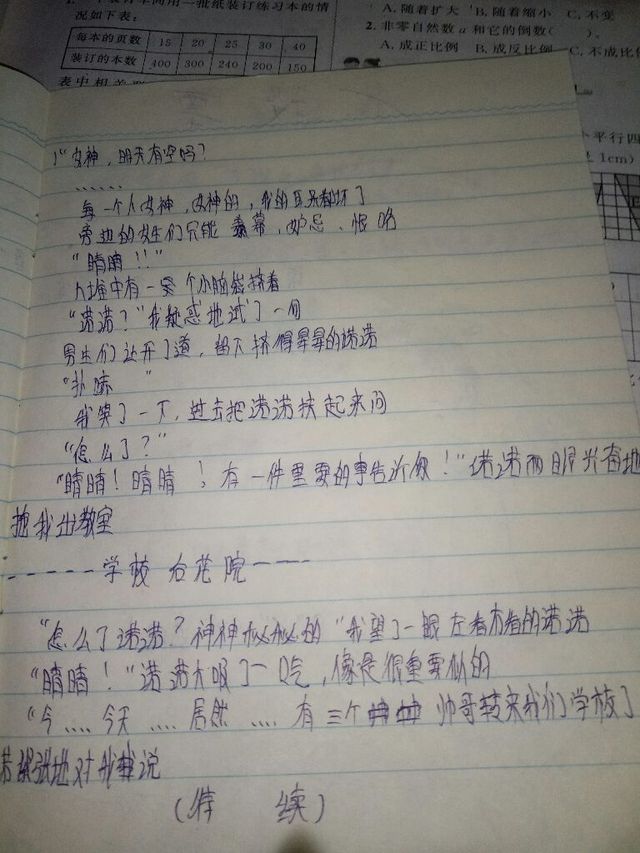 装订车间用一批纸装订练习本的情
况如下表：
每本的页数 15 20 25 30 40
装订的本数 400 300 240 200 150
表中相关
A. 随着扩大 B. 随着缩小 C. 不变
2. 非零自然数 a 和它的倒数( )。
A. 成正比例 B. 成反比例 C. 不成比例
个平行四
1cm)
"女神，明天有空吗？
……
每一个人女神，女神的，我的耳朵都坏了
旁边的女生们只能 羡慕，妒忌、恨 咯
"晴晴！！"
人堆中有一 个小脑袋挤着
"诺诺？"我疑惑地试了一句
男生们让开了道，留下挤得晕晕的诺诺
"扑哧 "
我笑了一下，过去把诺诺扶起来问
"怎么了？"
"晴晴！晴晴！，有一件重要的事告诉你！"诺诺两眼光奋地
拖我出教室
------学校 后花院-----
"怎么了诺诺？神神秘秘的"我望了一眼左看右看的诺诺
"晴晴！"诺诺大吸了一口气，像是很重要似的
"今…. 今天 …. 居然 …. 有 三个 帅哥转来我们学校了
紧张地对我说
（待 续）